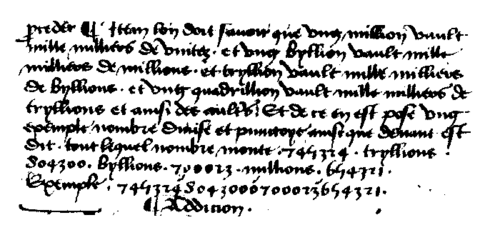 ¶ Item lon doit savoir que ung million vault
mille milliers de unitez · et ung byllion vault mille
milliers de millions · et tryllion vault mille milliers
de byllions · et ung quadrillion vault mille milliers de
tryllions et ainsi des aultres · Et de ce en est pose ung
exemple nombre divise et punctoye ainsi que devant est
dit · tout lequel nombre monte · 745324 · tryllions ·
804300 · byllions · 700023 · millions · 654321 ·
Exemple · 7453248043000700023654321 ·
¶ Addicion ·